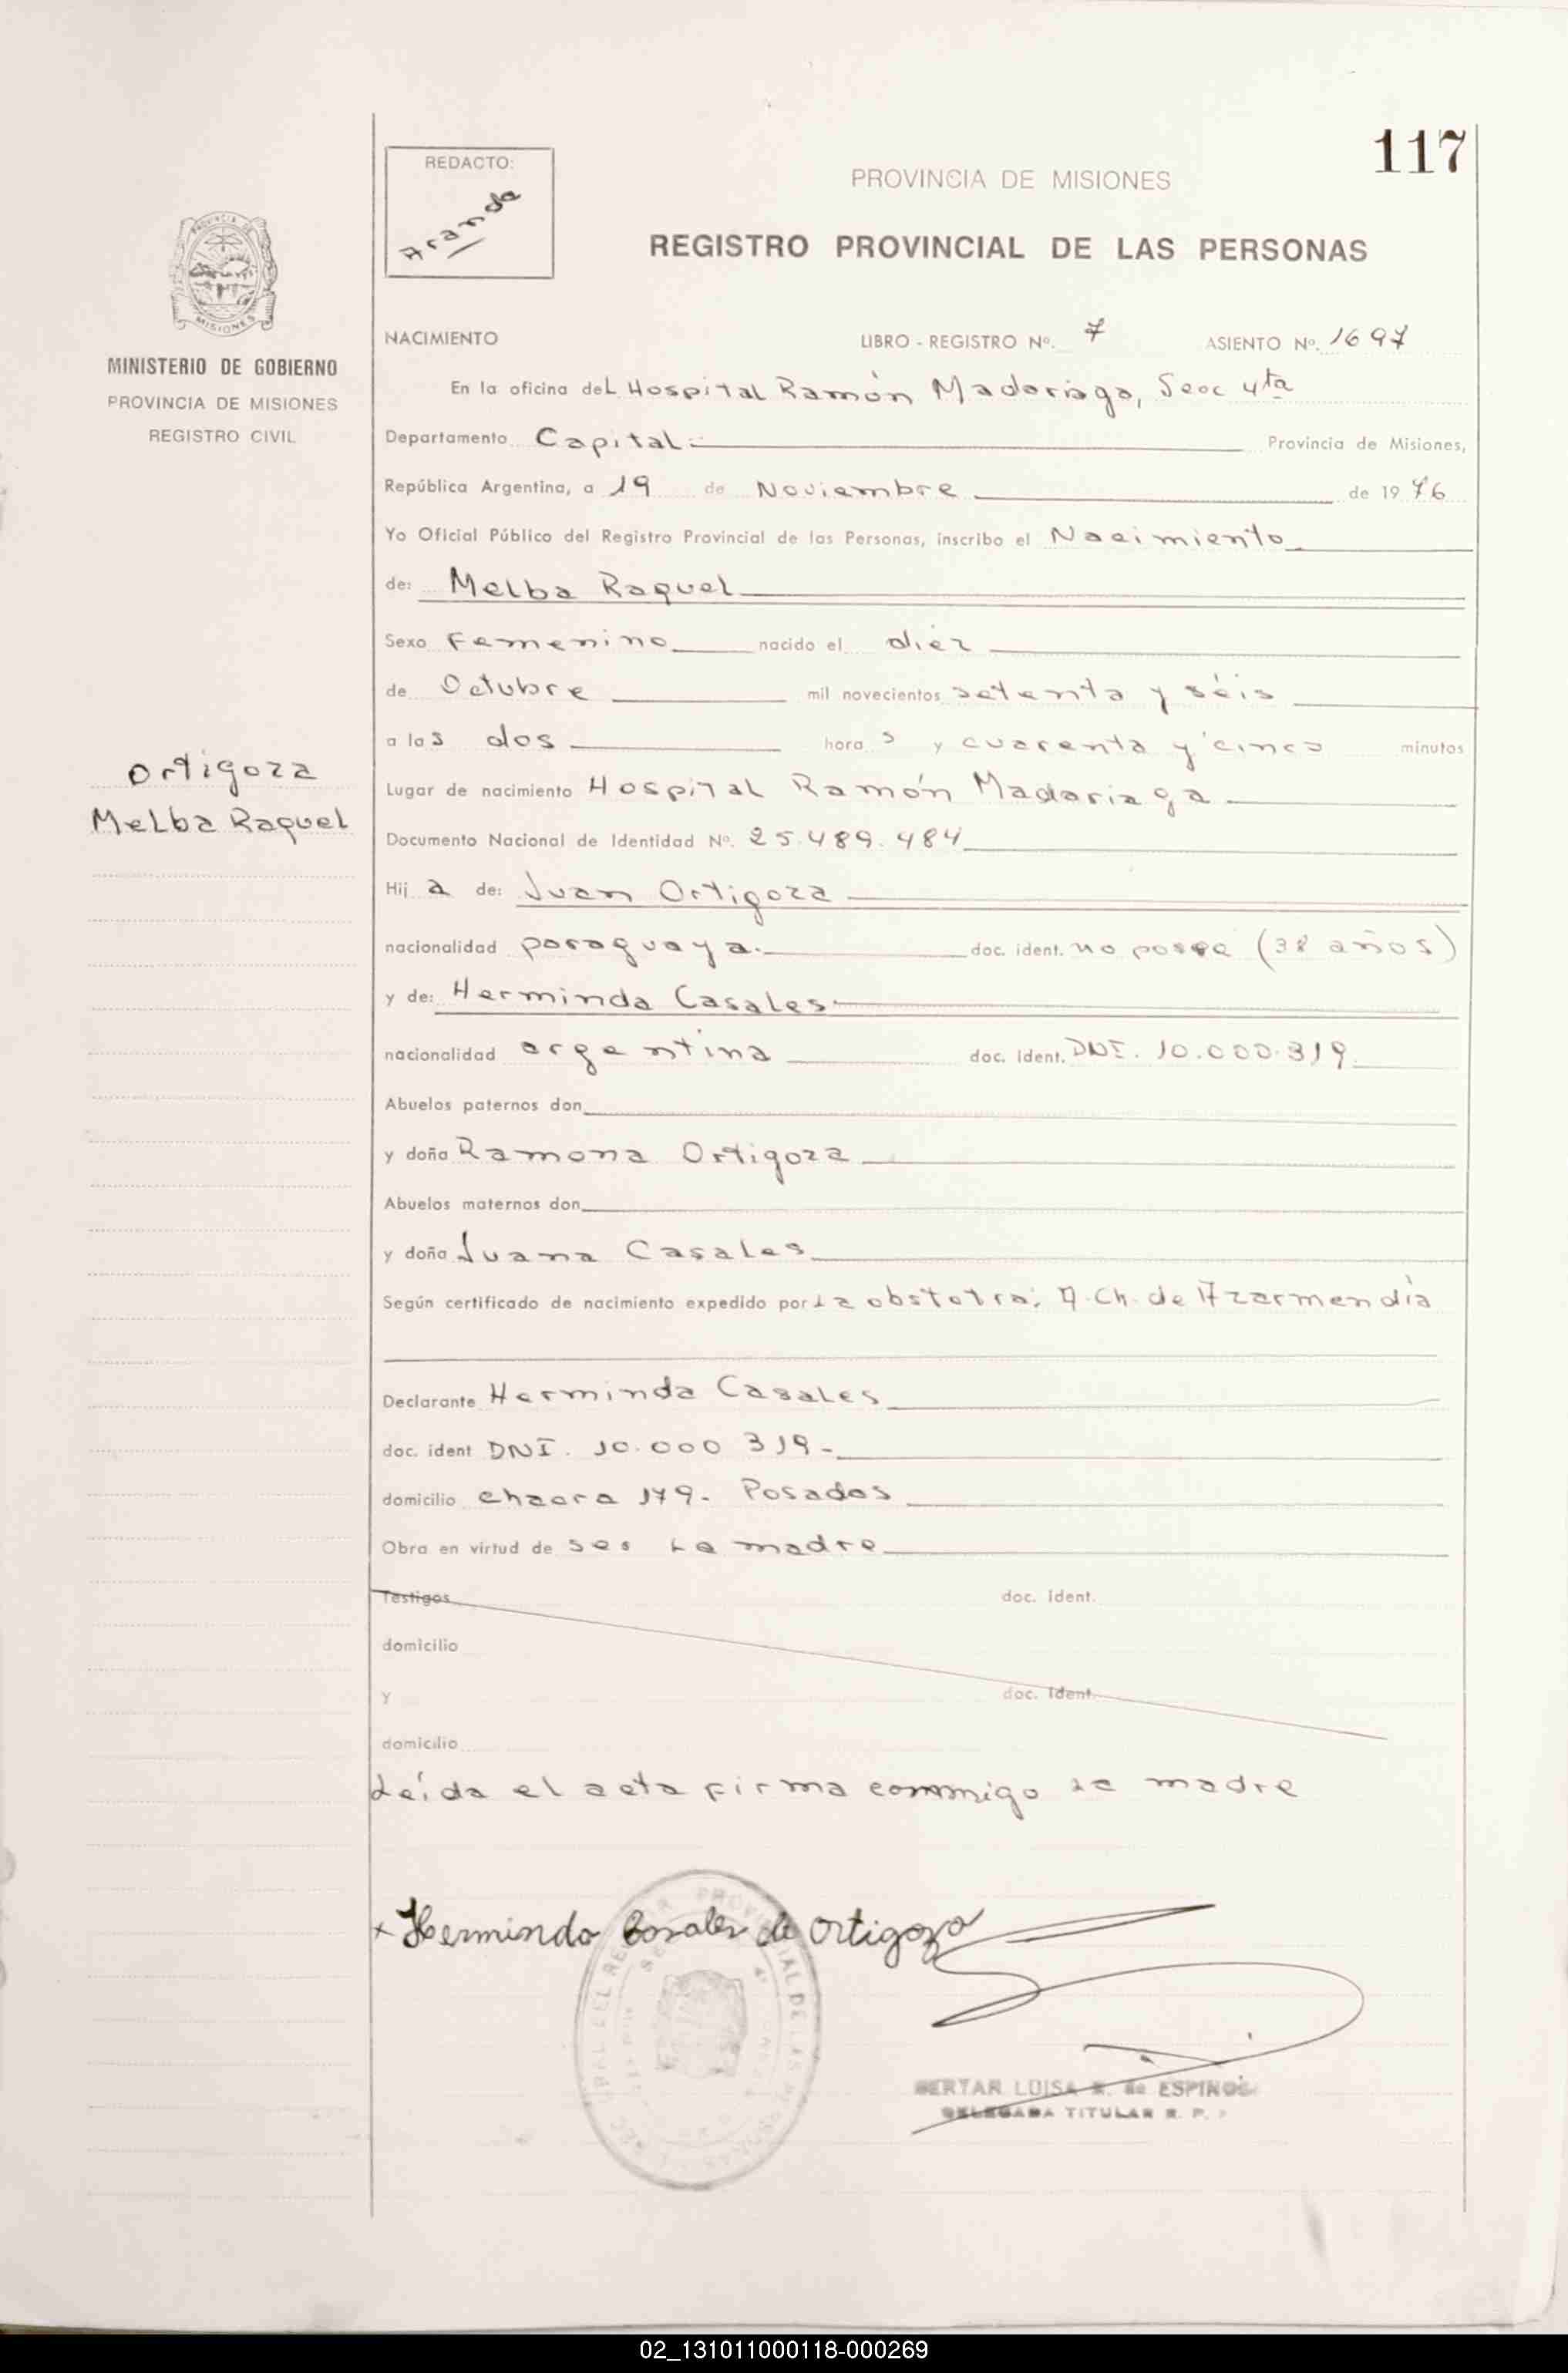 117
REDACTO:
Aranda
PROVINCIA DE MISIONES
REGISTRO PROVINCIAL DE LAS PERSONAS
MINISTERIO DE GOBIERNO
PROVINCIA DE MISIONES
REGISTRO CIVIL
NACIMIENTO LIBRO - REGISTRO Nº. 7 ASIENTO Nº. 1697
En la oficina del Hospital Ramón Madariaga, Secc 4ta
Departamento Capital Provincia de Misiones,
República Argentina, a 19 de Noviembre de 1976
Yo Oficial Público del Registro Provincial de las Personas, inscribo el Nacimiento
de: Melba Raquel
Sexo Femenino nacido el diez
de Octubre mil novecientos setenta y séis
a las dos horas y cuarenta y cinco minutos
Ortigoza
Melba Raquel
Lugar de nacimiento Hospital Ramón Madariaga
Documento Nacional de Identidad Nº. 25.489.484
Hija de: Juan Ortigoza
nacionalidad paraguaya. doc. ident. no posee (38 años)
y de: Herminda Casales
nacionalidad argentina doc. ident. DNI. 10.000.319
Abuelos paternos don
y doña Ramona Ortigoza
Abuelos maternos don
y doña Juana Casales
Según certificado de nacimiento expedido por La obstetra; A. Ch. de Azarmendia
Declarante Herminda Casales
doc. ident DNI. 10.000 319-
domicilio chacra 179- Posadas
Obra en virtud de ser La madre
Testigos doc. ident.
domicilio
y doc. ident.
domicilio
Leída el acta firma conmigo la madre
x Herminda Casales de Ortigoza
BERTAR LUISA R. de ESPINOS
DELEGADA TITULAR R. P.
02_131011000118-000269